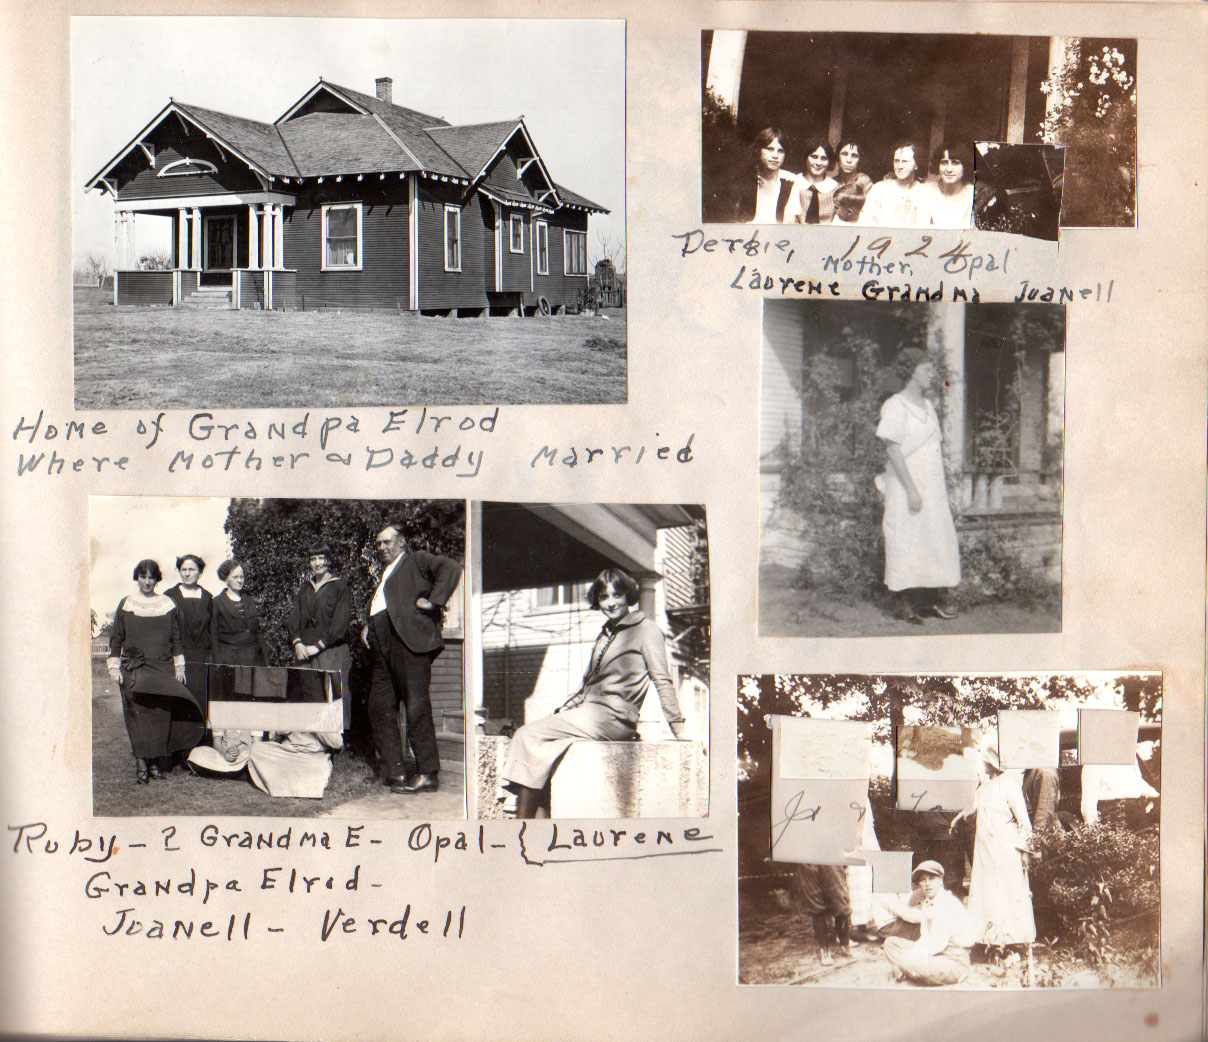 1924
Dergie, Mother, Opal
Laurene Grandma Juanell
Home of Grandpa Elrod
Where Mother & Daddy Married
Ruby - ? Grandma E- Opal- { Laurene
Grandpa Elrod-
Juanell - Verdell
Jr &